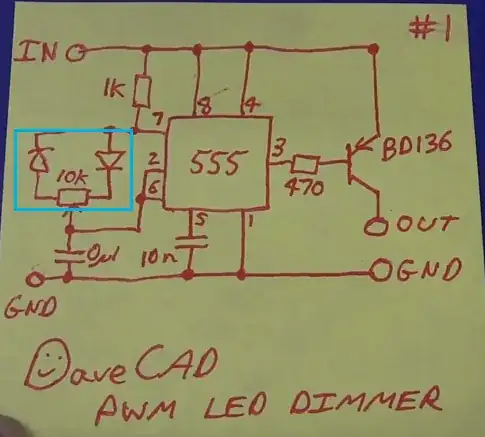 #1
IN
1K
7
8
4
2
6
555
3
470
BD136
10K
5
1
0μ1
10n
OUT
GND
GND
DaveCAD
PWM LED DIMMER